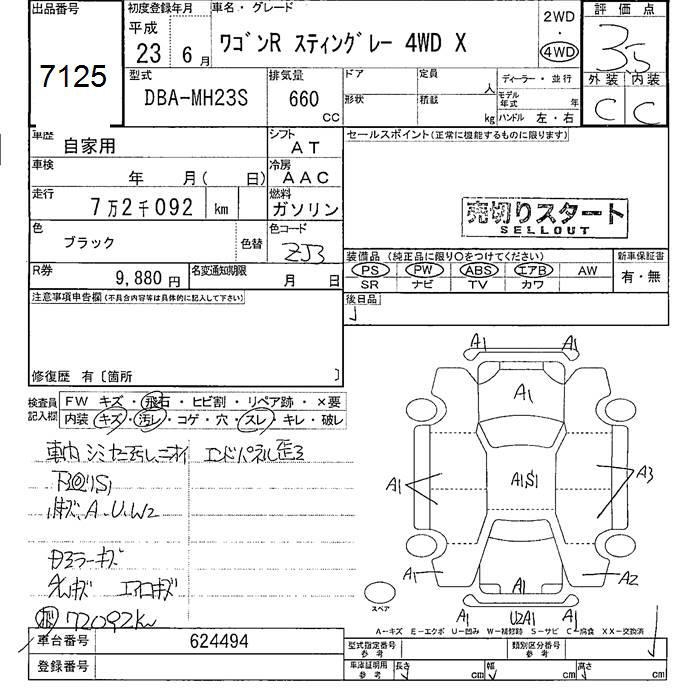 出品番号
7125
初度登録年月
平成
23 6月
車名・グレード
ワゴンR スティングレー 4WD X
2WD
・
4WD
評価点
3.5
外装 内装
C C
型式
DBA-MH23S
排気量
660
CC
ドア 定員 人
形状 積載 kg
ディーラー・並行
モデル年式 年
ハンドル 左・右
車歴
自家用
シフト
AT
セールスポイント(正常に機能するものに限ります)
車検
年 月( 日)
冷房
AAC
走行
7万2千092 km
燃料
ガソリン
売切りスタート
SELLOUT
色
ブラック
色替
色コード
ZJ3
装備品(純正品に限り○をつけてください)
PS PW ABS エアB AW
SR ナビ TV カワ
新車保証書
有・無
R券
9,880円
名変通知期限
月 日
後日品
注意事項申告欄(不具合内容等は具体的に記入して下さい)
修復歴 有〔箇所 〕
検査員記入欄
FW キズ・飛石・ヒビ割・リペア跡・×要
内装 キズ・汚レ・コゲ・穴・スレ・キレ・破レ
車内シミ ニオイ エンドパネル歪ミ
A.U.W2
ドアミラーキズ
エアロキズ
72092km
A1 A1
A1
A1S1
A1
A3
A1
A1
A2
A1 U2A1 A1
スペア
A-キズ E-エクボ U-凹み W-補修跡 S-サビ C-腐食 XX-交換済
車台番号
624494
登録番号
型式指定番号
参考
類別区分番号
参考
車庫証明用
参考
長さ cm 幅 cm 高さ cm